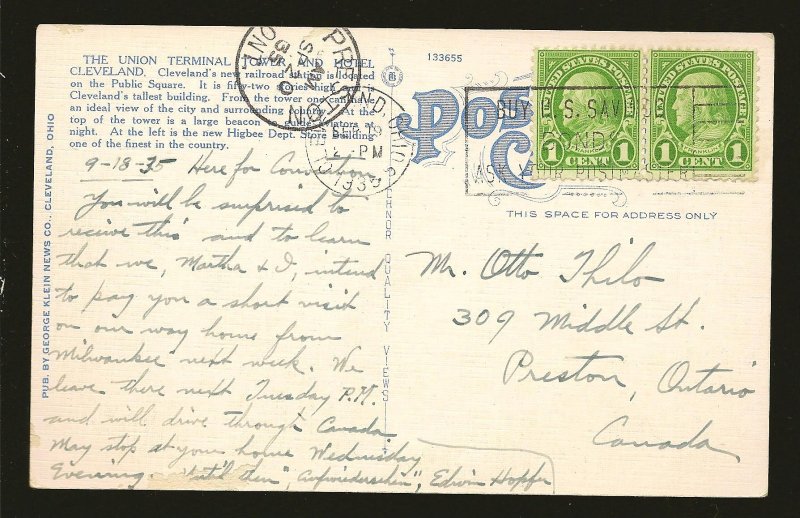 THE UNION TERMINAL TOWER AND HOTEL
CLEVELAND. Cleveland's new railroad station is located
on the Public Square. It is fifty-two stories high and
Cleveland's tallest building. From the tower one can have
an ideal view of the city and surrounding country. At the
top of the tower is a large beacon to guide aviators at
night. At the left is the new Higbee Dept. Store building
one of the finest in the country.
133655
PRESTON
ONT
AM
SP 20
35
CLEVELAND, OHIO
SEP 19
2 - PM
1935
BUY U.S. SAVINGS
BONDS
ASK YOUR POSTMASTER
UNITED STATES POSTAGE
1 CENT 1
UNITED STATES POSTAGE
1 CENT 1
Post
THIS SPACE FOR ADDRESS ONLY
PUB. BY GEORGE KLEIN NEWS CO., CLEVELAND, OHIO
QUALITY VIEWS
9-18-35 Here for Convention
You will be surprised to
receive this and to learn
that we, Martha & I, intend
to pay you a short visit
on our way home from
Milwaukee next week. We
leave there next Tuesday P.M.
and will drive through Canada.
May stop at your home Wednesday
Evening. "Until then", "Aufwiedersehen", Edwin Hopfer
Mr. Otto Thilo
309 Middle St.
Preston, Ontario
Canada